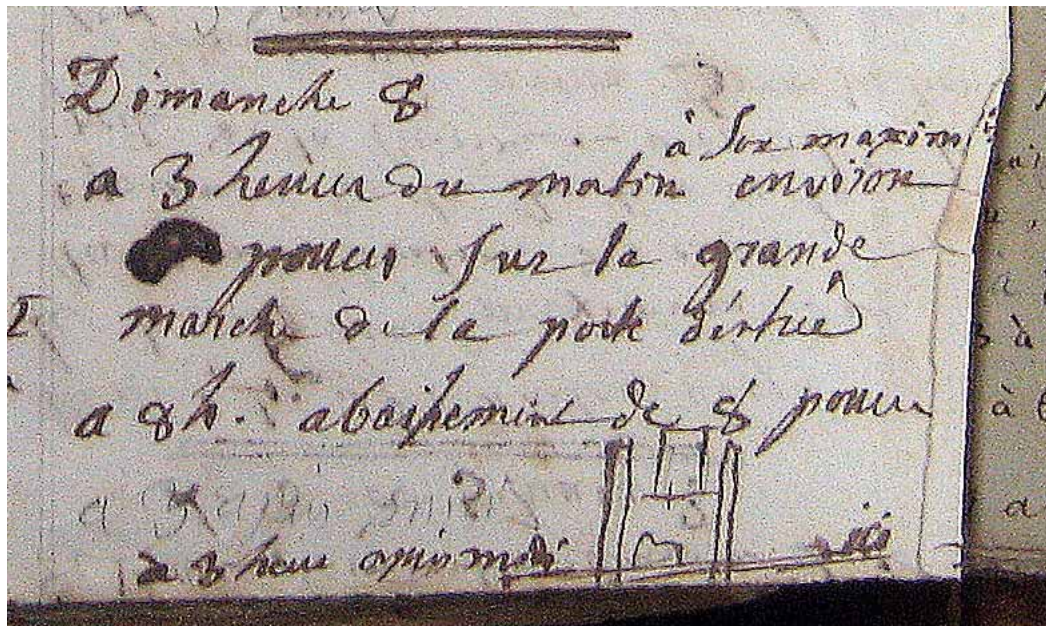 Dimanche 8
à son maxim
a 3 heures du matin environ
pouces sur la grande
marche de la porte d'entrée
a 8 h. abaissement de 8 pouces
a
de 3 heure après midi
ici